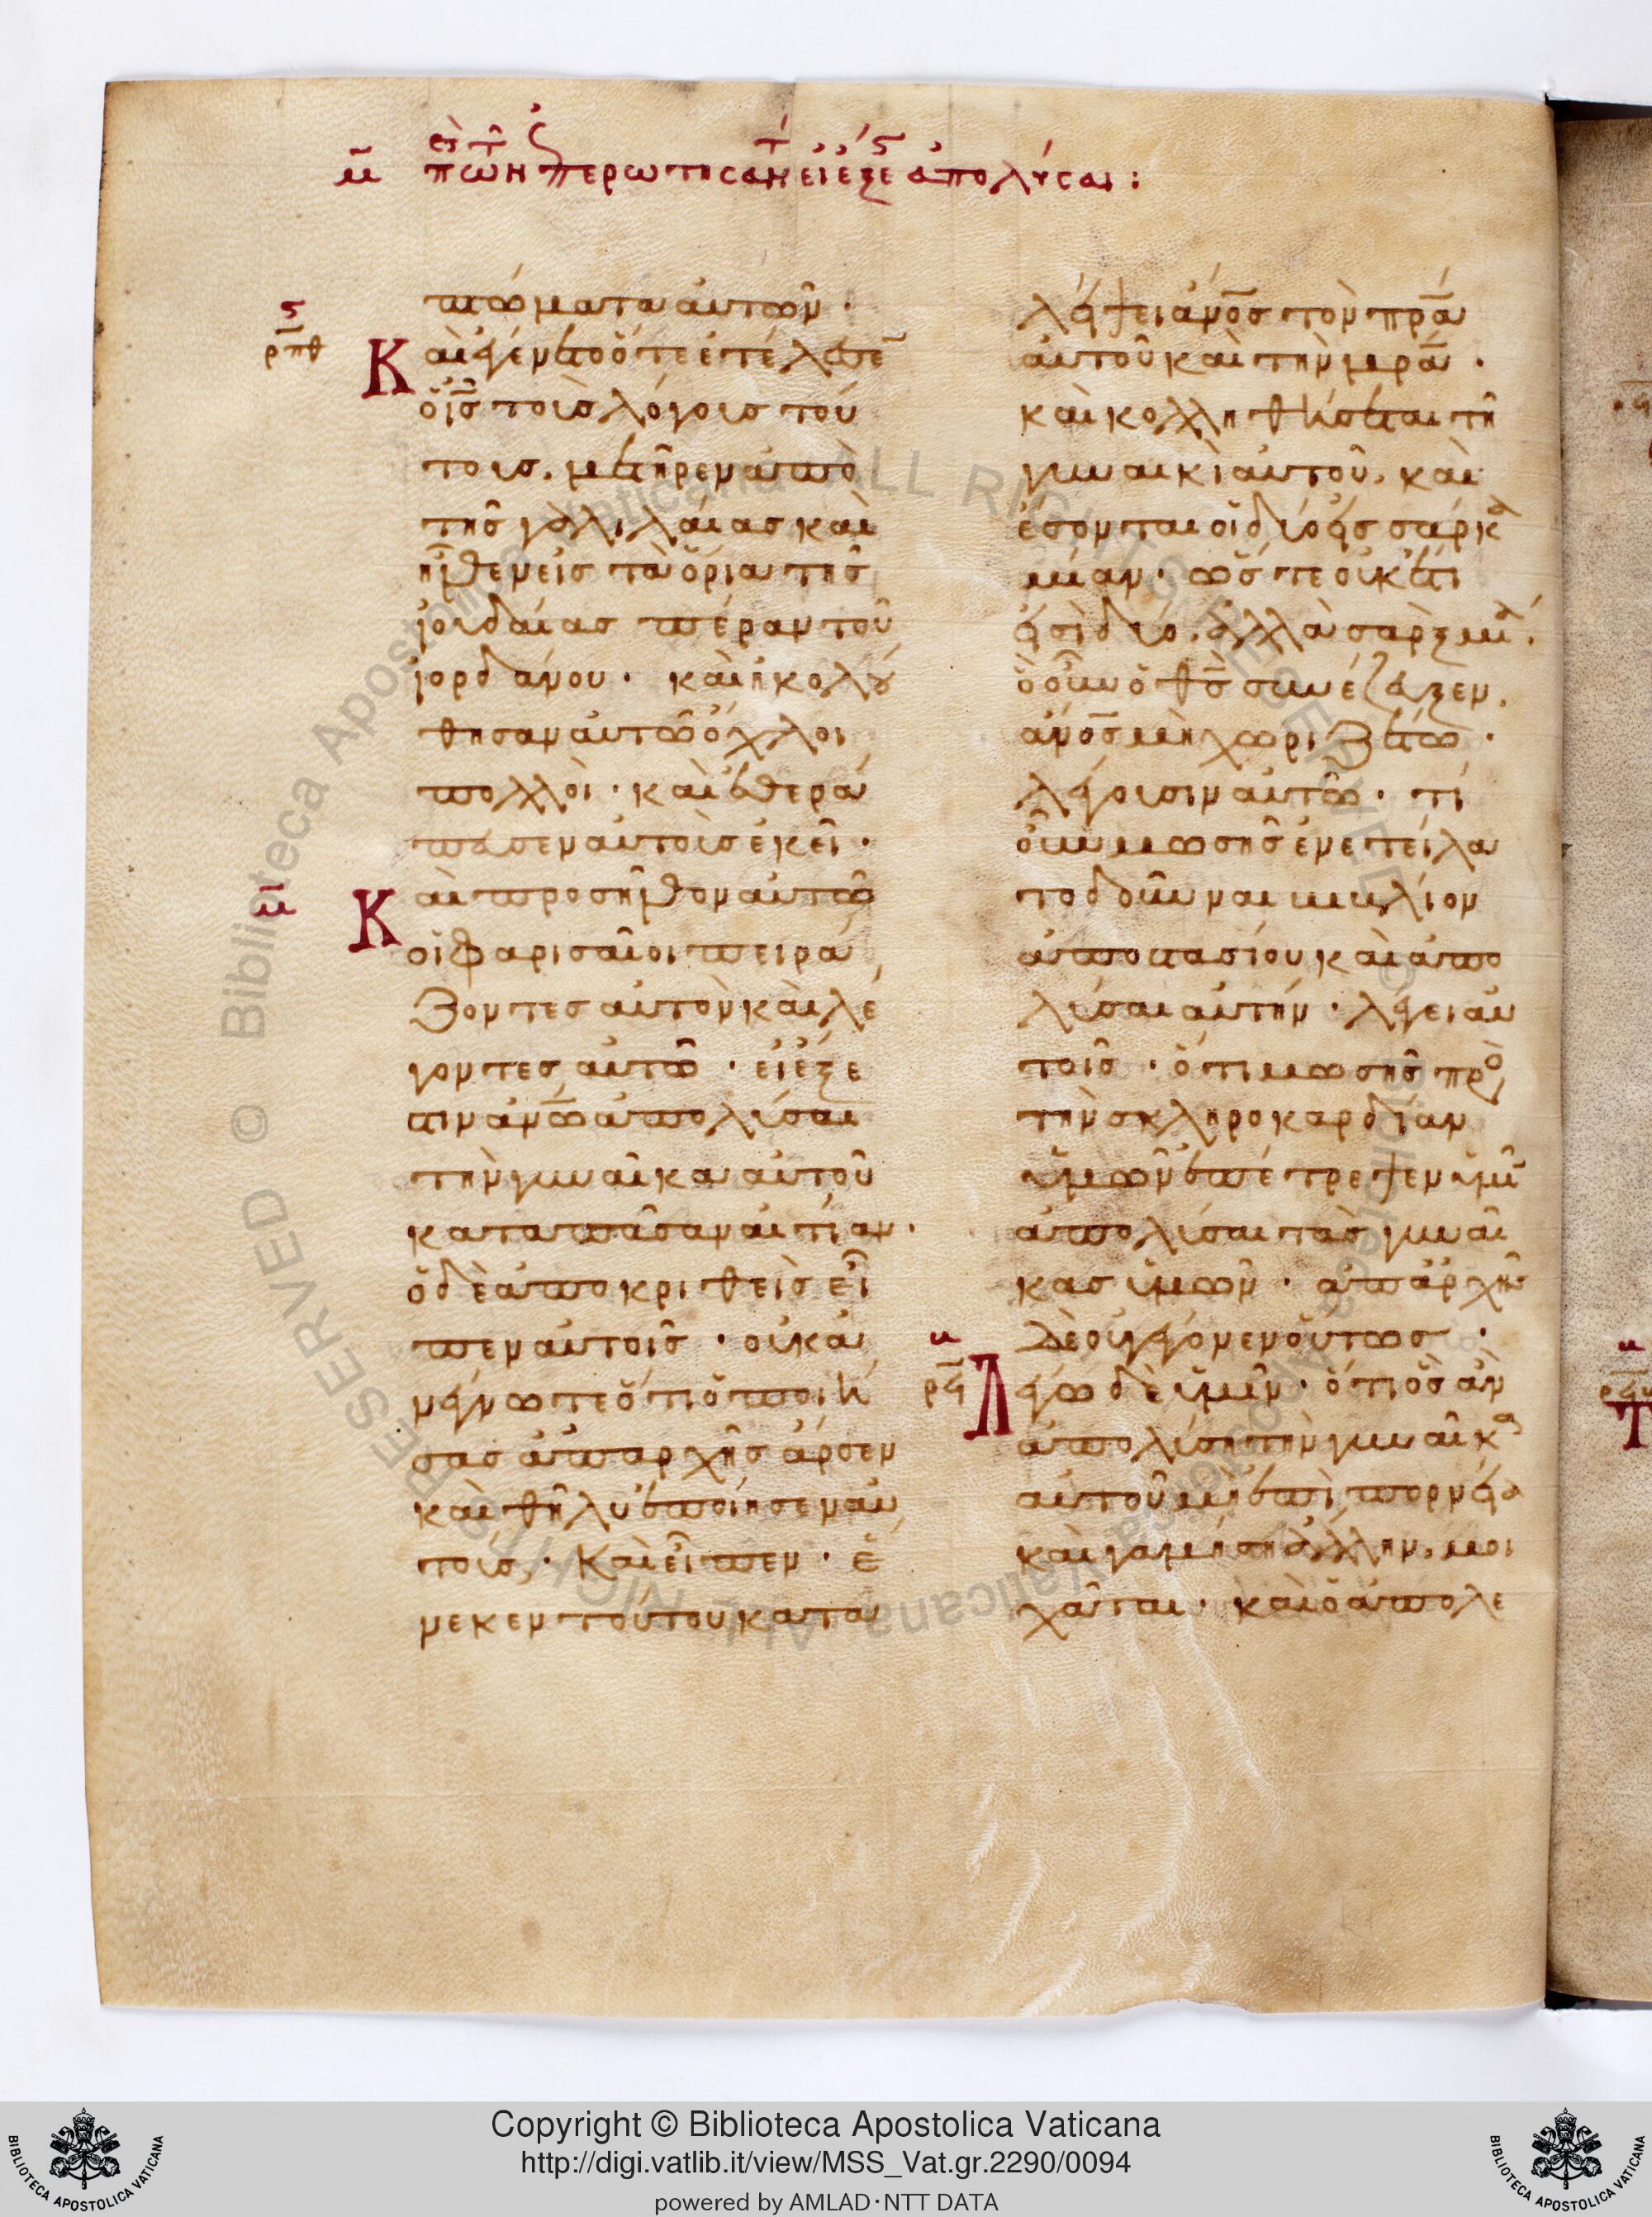 μ̅ πε τ̅ ἐπερωτησάντ εἰ ἔξεςἀπολύσαι:
πτώματα αὐτῶν·
ϛ
ρ̅π̅θ̅
Καὶ ἐγένετο ὅτε ἐτέλεσε̅
ὁ ι̅ς̅ τοὺς λόγους τού
τους, μετῆρεν ἀπὸ
τῆς γαλιλαίας καὶ
ἦλθεν εἰς τὰ ὅρια τῆς
ἰουδαίας πέραν τοῦ
ἰορδάνου· καὶ ἠκολού
θησαν αὐτῶ ὄχλοι
πολλοὶ· καὶ ἐθερά
πευσεν αὐτοὺς ἐκεῖ·
μ̅
Καὶ προσῆλθον αὐτῶ
οἱ φαρισαῖοι πειρά
ζοντες αὐτὸν καὶ λέ
γοντες αὐτῶ· εἰ ἔξε
στιν ἀν̅ω̅ ἀπολύσαι
τὴν γυναῖκα αὐτοῦ
κατα πᾶσαν αἰτίαν·
ὁ δὲ ἀποκριθεὶς εἶ
πεν αὐτοῖς· οὐκ ἀ
νέγνωτε ὅτι ὁ ποιή
σας ἀπαρχῆς ἄρσεν
καὶ θῆλυ ἐποίησεν αὐ
τούς, Καὶ εἶπεν· ἕ
νεκεν τούτου κατα
λείψει ἄν̅ο̅ς̅ τὸν π̅ρ̅α̅
αὐτοῦ καὶ τὴν μ̅ρ̅α̅·
καὶ κολληθήσεται τῆ
γυναικὶ αὐτοῦ, καὶ
ἔσονται οἱ δύο εἰς σάρκα
μίαν· ὥστε οὐκέτι
εἰσὶ δύο, ἀλλὰ σὰρξ μία,
ὃ οὖν ὁ θ̅ς̅ συνέζευξεν,
ἄν̅ο̅ς̅ μὴ χωριζέτω·
λέγουσιν αὐτῶ· τί
οὖν μωσῆς ἐνετείλα
το δοῦναι βιβλίον
ἀποστασίου καὶ ἀπο
λύσαι αὐτήν· λέγει αὐ
τοῖς· ὅτι μωσῆς πρὸ
τὴν σκληροκαρδίαν
ὑμῶν ἐπέτρεψεν ὑμῖ̅
ἀπολύσαι τὰς γυναῖ
κας ὑμῶν· ἀπ ἀρχῆς
δὲ οὐ γέγονεν οὕτως·
μ
ρ̅ϟ̅
Λέγω δὲ ὑμῖν· ὅτι ὃς ἂν
ἀπολύση τὴν γυναῖκα
αὐτοῦ μὴ ἐπὶ πορνεία
καὶ γαμήση ἄλλην, μοι
χᾶται· καὶ ὁ ἀπολε
Copyright © Biblioteca Apostolica Vaticana
http://digi.vatlib.it/view/MSS_Vat.gr.2290/0094
powered by AMLAD·NTT DATA
BIBLIOTECA APOSTOLICA VATICANA
BIBLIOTECA APOSTOLICA VATICANA